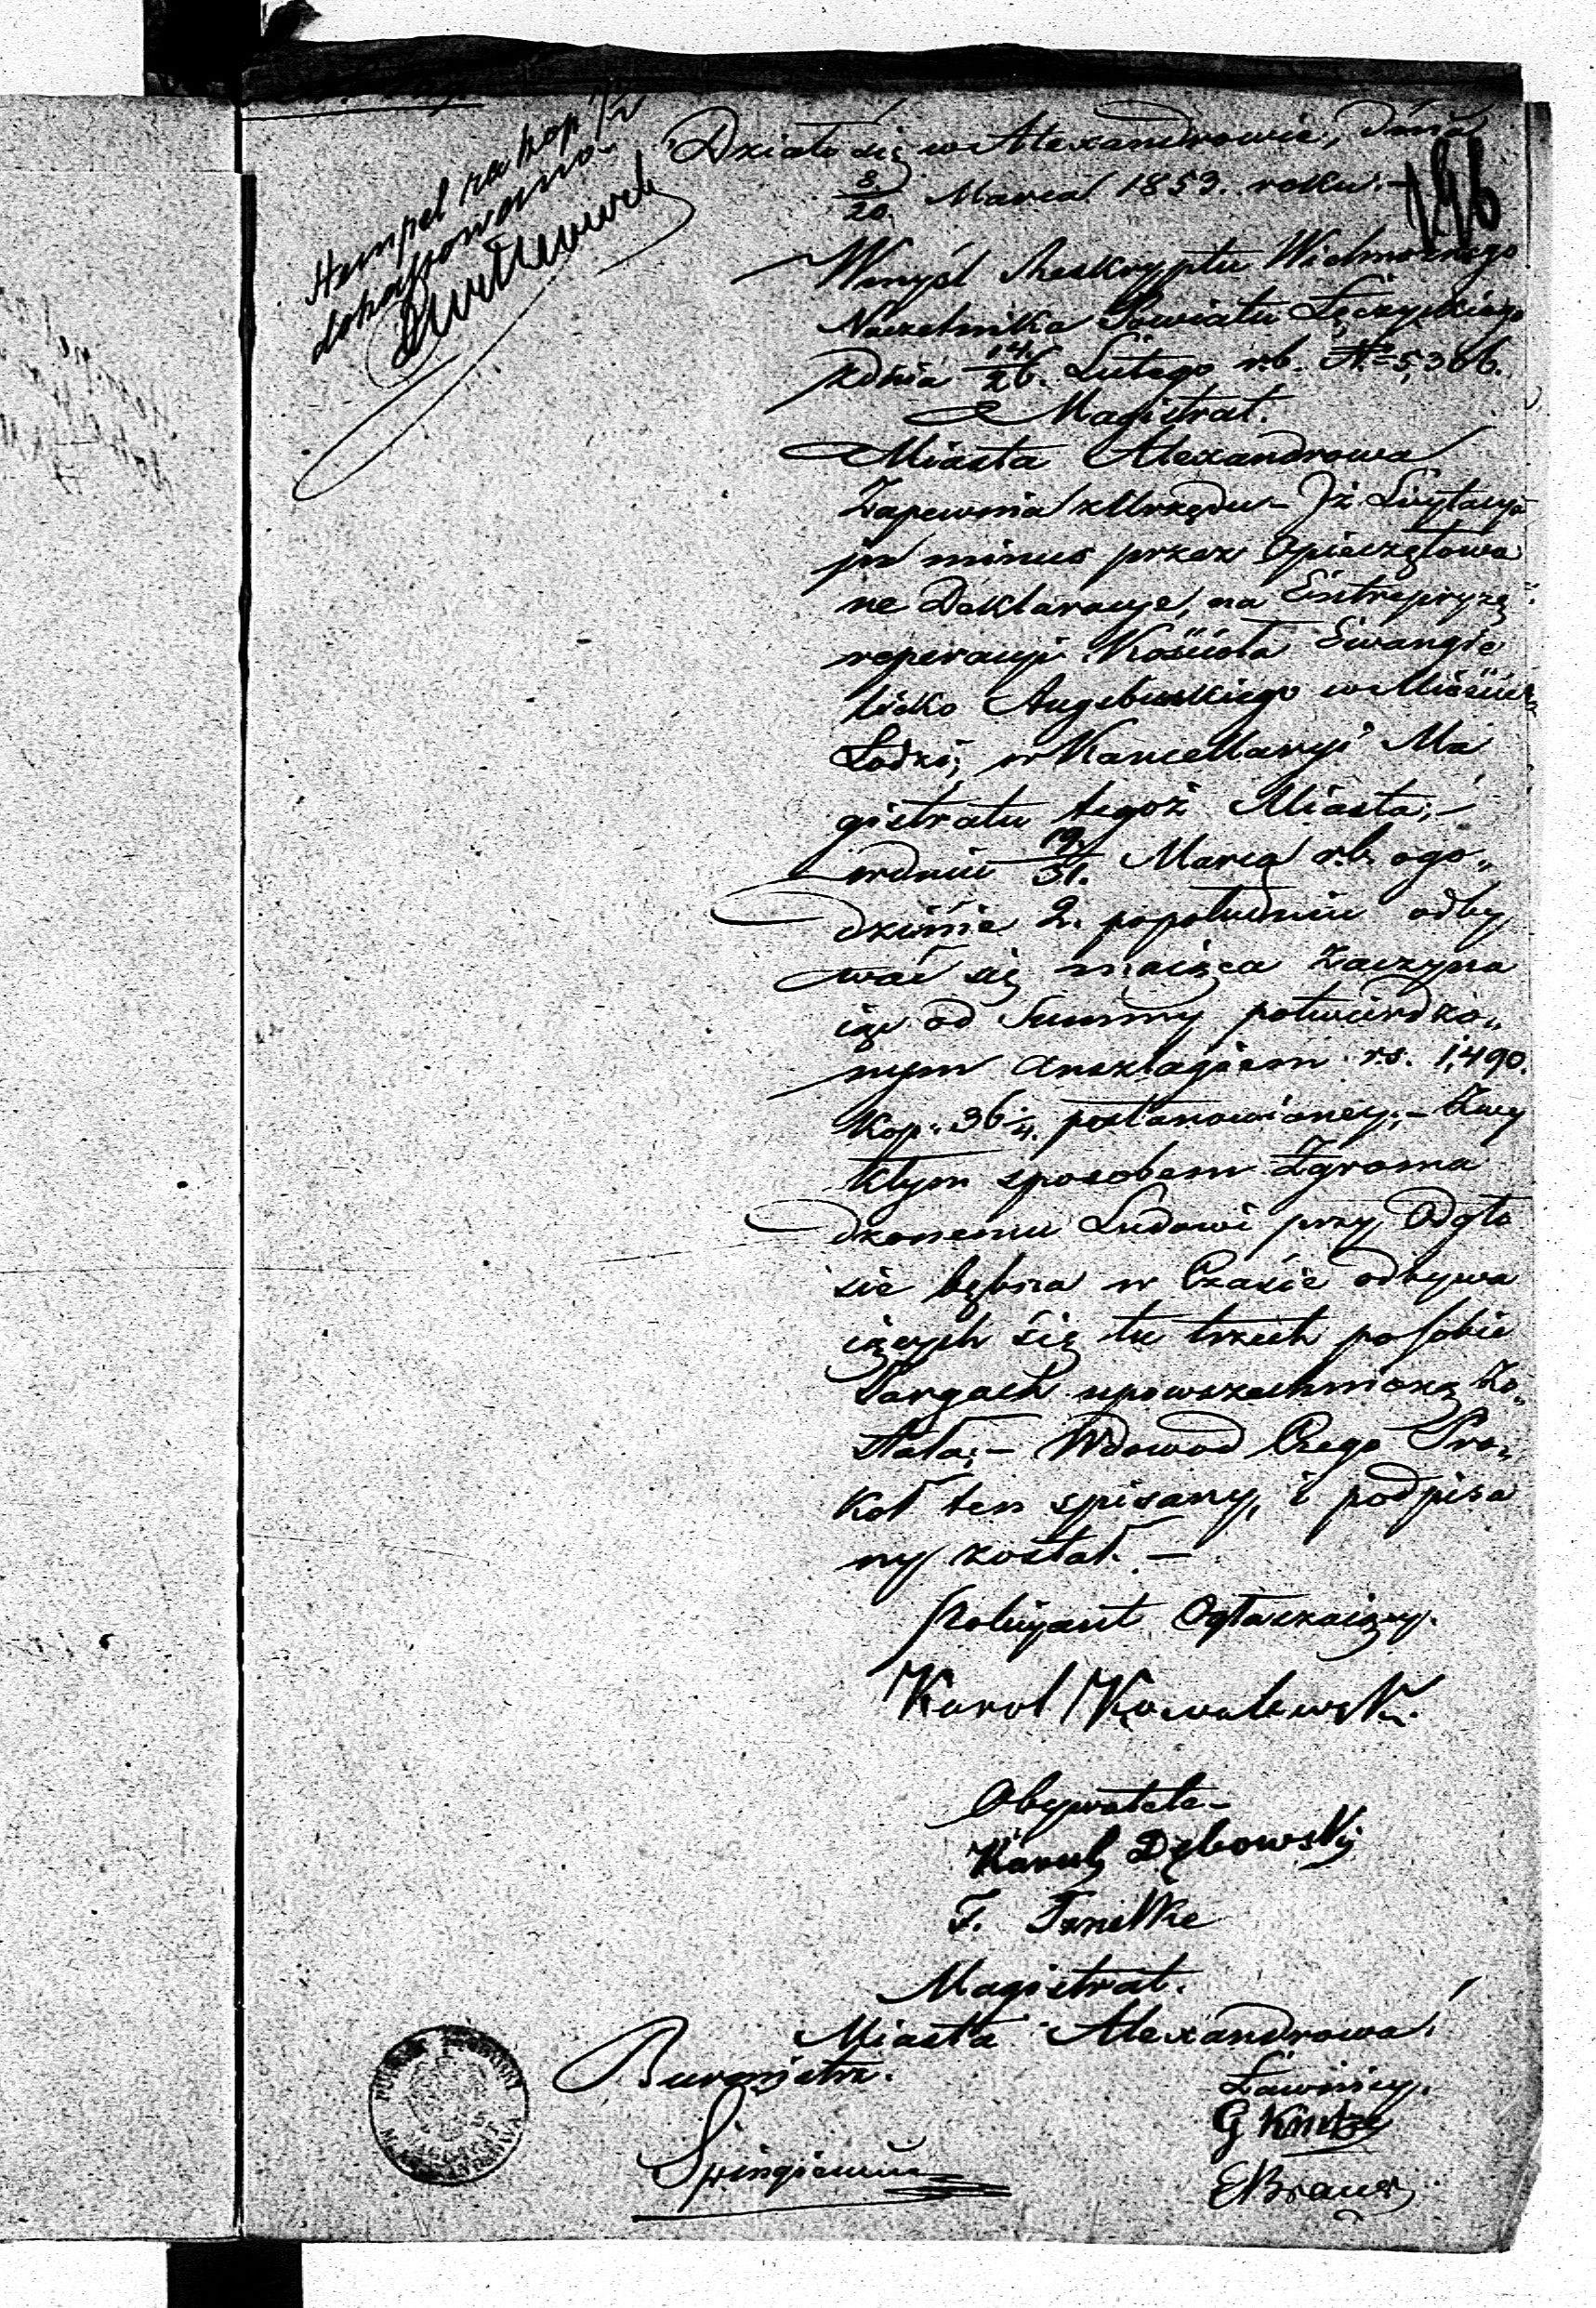 Stempel za kop 7½
dokassowano
Działo się w Alexandrowie, dnia
8/20 Marca 1853. roku.-
W myśl Reskryptu Wielmożnego
Naczelnika Powiatu Łęczyckiego
zdnia 14/26. Lutego r.b. N° 5,366.
Magistrat.
Miasta Alexandrowa
Zapewnia z Urzędu - Iż Licytacya
in minus przez Opieczętowa
ne Deklaracye, na Entrepryzę
reperacyi Kościoła Ewangie
licko Augsburskiego w Mieście
Łodzi, w Kancellaryi Ma
gistratu tegoż Miasta,-
wdniu 19/31. Marca r.b. ogo„
dzinie 2. popołudniu odby
wać się maiąca Zaczyna
iąc od Summy potwierdzo„
nym anszlagiem rs. 1,490.
Kop. 36¼. postanowioney;- Zwy
kłym sposobem Zgroma
dzonemu Ludowi przy Odgło
sie bębna w Czasie odbywa
iących się tu trzech po sobie
Targach upowszechnioną Zo„
stała;- W dowod Czego Pro„
koł ten spisany, i podpisa
ny został.-
Policyant Ogłaszaiący.
Karol Kowalewski.
Obywatele-
Karol Dębowski
F.
Magistrat.
Miasta Alexandrowa
Burmistrz.
Ławnicy.
G